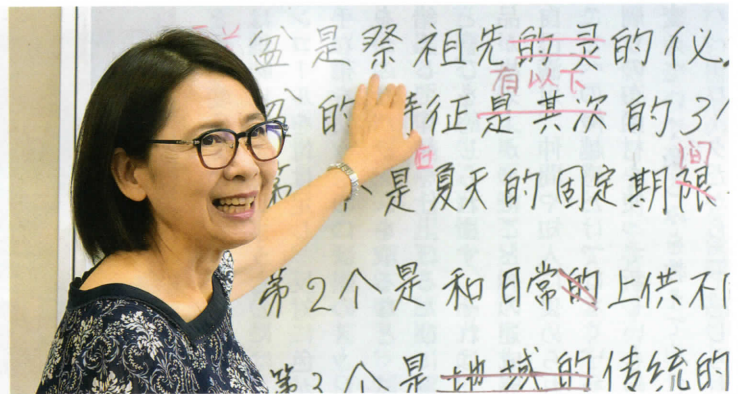 盆是祭祖先的灵的仪
有以下
盆的特征是其次的3个
间
第个是夏天的固定期限
第2个是和日常的上供不同
第3个是地域的传统的